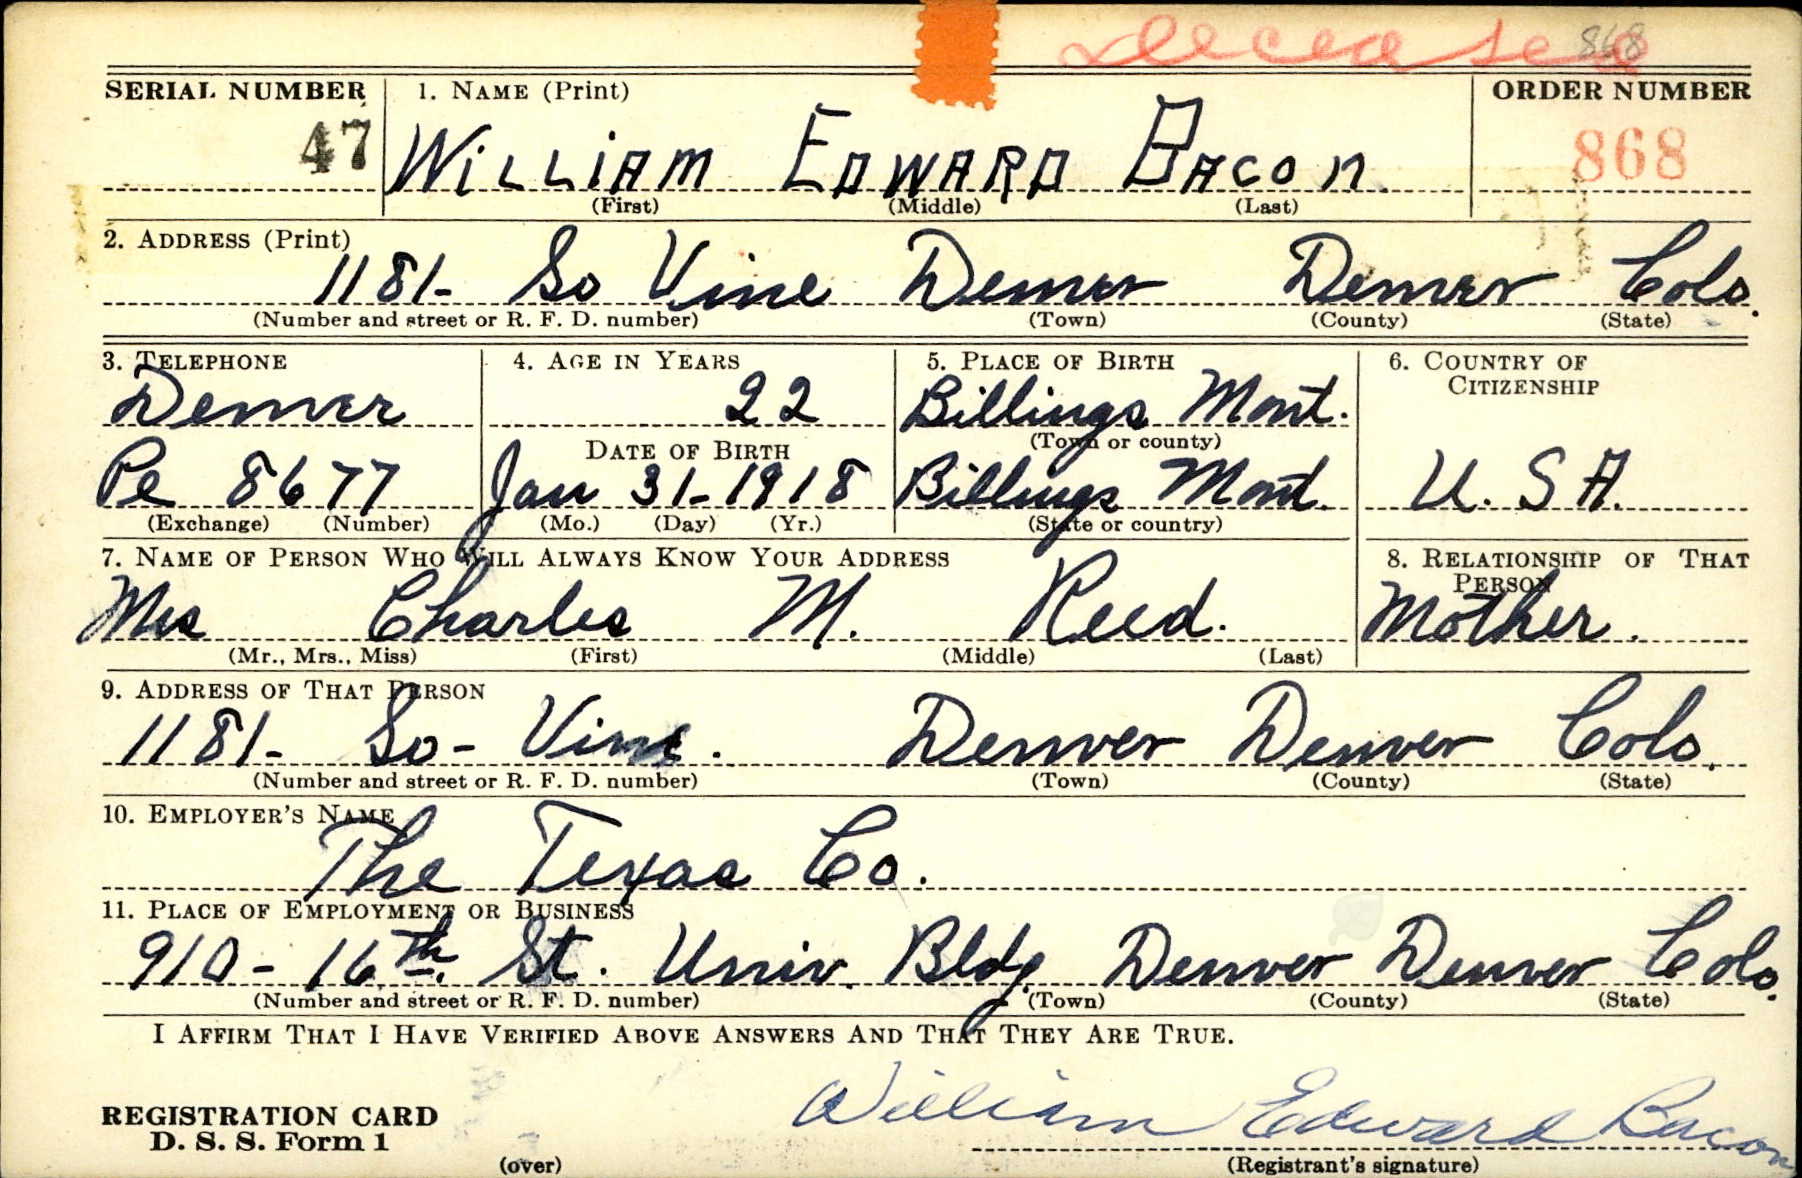 Deceased 868
SERIAL NUMBER 1. NAME (Print) ORDER NUMBER
47 WILLIAM EDWARD BACON 868
(First) (Middle) (Last)
2. ADDRESS (Print)
1181- So Vine Denver Denver Colo.
(Number and street or R. F. D. number) (Town) (County) (State)
3. TELEPHONE 4. AGE IN YEARS 5. PLACE OF BIRTH 6. COUNTRY OF
CITIZENSHIP
Denver 22 Billings Mont.
DATE OF BIRTH (Town or county)
Pe 8677 Jan 31-1918 Billings Mont. U. S A.
(Exchange) (Number) (Mo.) (Day) (Yr.) (State or country)
7. NAME OF PERSON WHO WILL ALWAYS KNOW YOUR ADDRESS 8. RELATIONSHIP OF THAT
PERSON
Mrs Charles M. Reed. Mother.
(Mr., Mrs., Miss) (First) (Middle) (Last)
9. ADDRESS OF THAT PERSON
1181- So- Vine. Denver Denver Colo.
(Number and street or R. F. D. number) (Town) (County) (State)
10. EMPLOYER'S NAME
The Texas Co.
11. PLACE OF EMPLOYMENT OR BUSINESS
910- 16th. St. Univ. Bldg. Denver Denver Colo.
(Number and street or R. F. D. number) (Town) (County) (State)
I AFFIRM THAT I HAVE VERIFIED ABOVE ANSWERS AND THAT THEY ARE TRUE.
REGISTRATION CARD William Edward Bacon
D. S. S. Form 1
(over) (Registrant's signature)